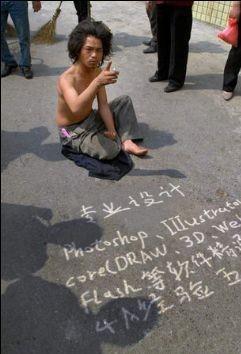 专业设计
Photoshop、Illustrator
core(DRAW、3D、We
Flash 等软件精